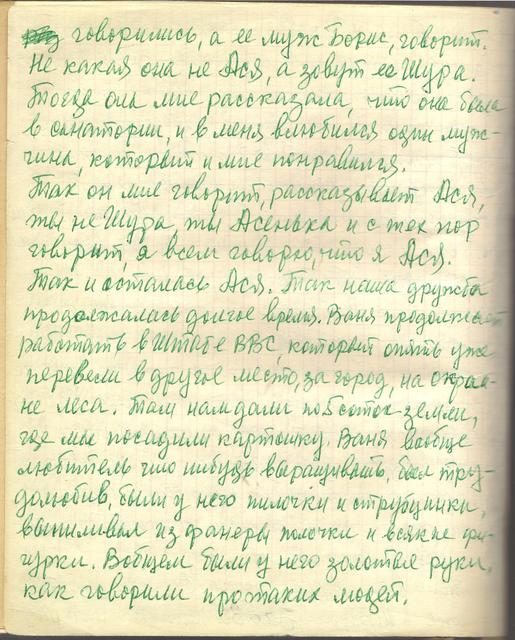 говорились, а ее муж Борис, говорит.
Не какая она не Ася, а зовут ее Шура.
Тогда она мне рассказала, что она была
в санатории, и в меня влюбился один муж-
чина, который и мне понравился.
Так он мне говорит, рассказывает Ася,
ты не Шура, ты Асенька и с тех пор
говорит, я всем говорю, что я Ася.
Так и осталась Ася. Так наша дружба
продолжалась долгое время. Ваня продолжает
работать в Штабе ВВС, который опять уже
перевели в другое место, за город, на окраи-
не леса. Там нам дали по 5 соток земли,
где мы посадили картошку. Ваня вообще
любитель что нибудь выращивать, был тру-
долюбив, были у него пилочки и струбцинки,
выпиливал из фанеры полочки и всякие фи-
гурки. Вобщем были у него золотые руки,
как говорили про таких людей.